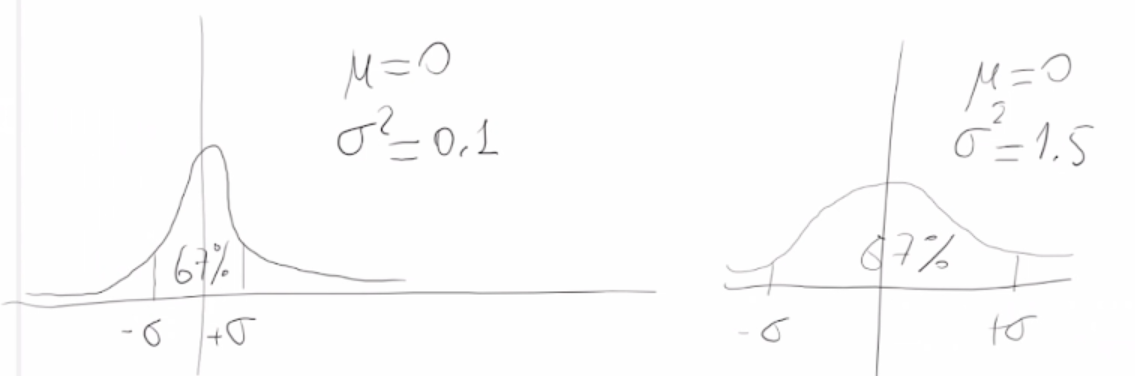 μ=0
σ²=0.1
67%
-σ +σ
μ=0
σ²=1.5
67%
-σ +σ